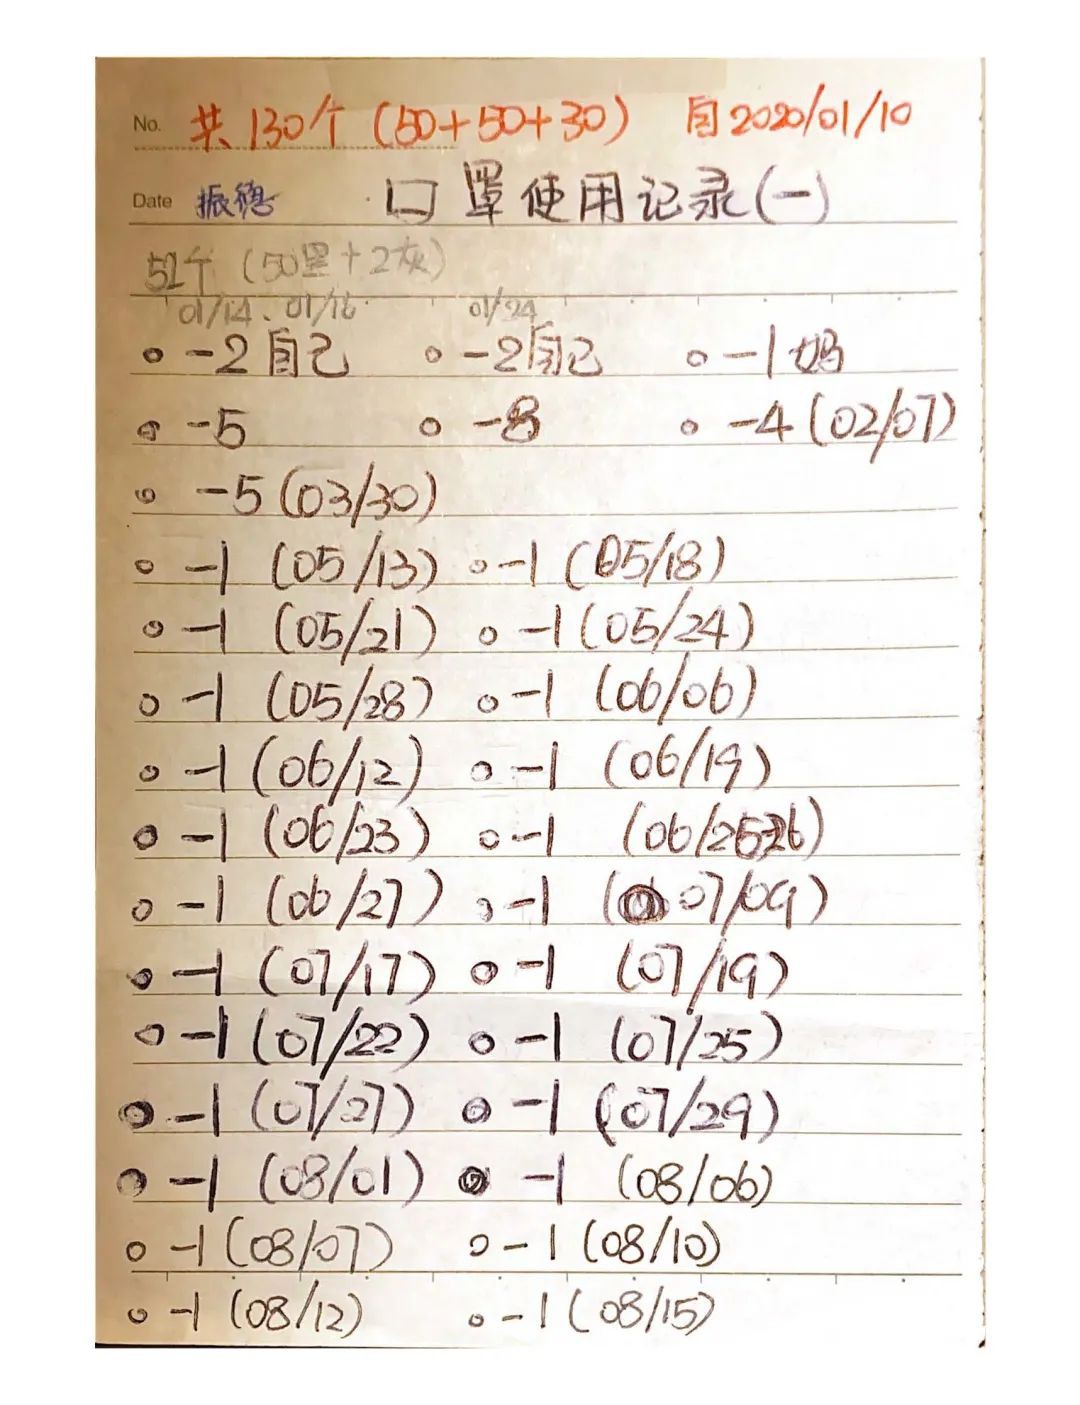 No. 共130个(50+50+30) 自2020/01/10
Date 振德 口罩使用记录(一)
52个(50黑+2灰)
01/14、01/16 01/24
-2自己 -2自己 -1妈
-5 -8 -4(02/07)
-5(03/30)
-1 (05/13) -1 (05/18)
-1 (05/21) -1 (05/24)
-1 (05/28) -1 (06/06)
-1 (06/12) -1 (06/19)
-1 (06/23) -1 (06/25-26)
-1 (06/27) -1 (07/09)
-1 (07/17) -1 (07/19)
-1 (07/22) -1 (07/25)
-1 (07/27) -1 (07/29)
-1 (08/01) -1 (08/06)
-1 (08/07) -1 (08/10)
-1 (08/12) -1 (08/15)